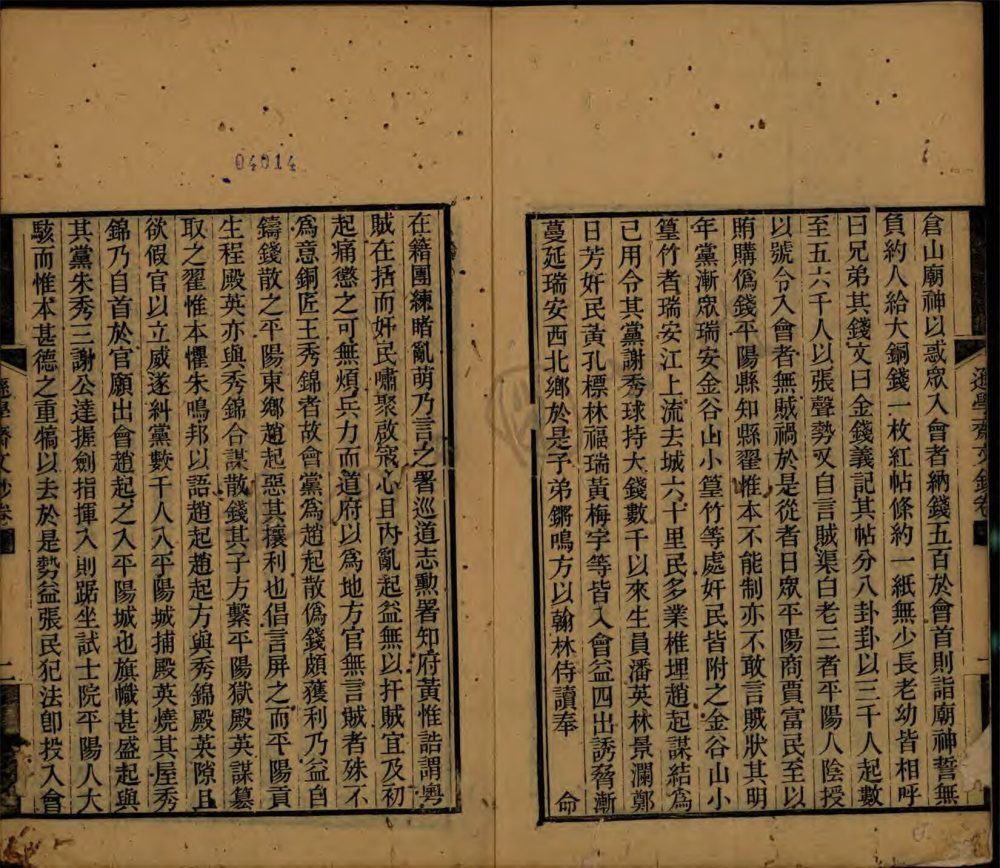 倉山廟神以惑眾入會者納錢五百於會首則詣廟神誓無
負約人給大銅錢一枚紅帖條約一紙無少長老幼皆相呼
曰兄弟其錢文曰金錢義記其帖分八卦卦以三千人起數
至五六千人以張聲勢又自言賊渠白老三者平陽人陰授
以號令入會者無賊禍於是從者日眾平陽商賈富民至以
賄購僞錢平陽縣知縣翟惟本不能制亦不敢言賊狀其明
年黨漸眾瑞安金谷山小篁竹等處奸民皆附之金谷山小
篁竹者瑞安江上流去城六十里民多業椎埋趙起謀結爲
己用令其黨謝秀球持大錢數千以來生員潘英林景瀾鄭
日芳奸民黃孔標林福瑞黃梅宇等皆入會益四出誘脅漸
蔓延瑞安西北鄉於是子弟鏘鳴方以翰林侍讀奉 命
遜學齋文鈔卷 一
在籍團練睹亂萌乃言之署巡道志勲署知府黃惟誥謂粵
賊在括而奸民嘯聚啟寇心且內亂起益無以扞賊宜及初
起痛懲之可無煩兵力而道府以爲地方官無言賊者殊不
爲意銅匠王秀錦者故會黨爲趙起散僞錢頗獲利乃益自
鑄錢散之平陽東鄉趙起惡其攘利也倡言屏之而平陽貢
生程殿英亦與秀錦合謀散錢其子方繫平陽獄殿英謀篡
取之翟惟本懼朱鳴邦以語趙起趙起方與秀錦殿英隙且
欲假官以立威遂糾黨數千人入平陽城捕殿英燒其屋秀
錦乃自首於官願出會趙起之入平陽城也旗幟甚盛起與
其黨朱秀三謝公達握劍指揮入則踞坐試士院平陽人大
駭而惟本甚德之重犒以去於是勢益張民犯法卽投入會
遜學齋文鈔卷 二
04014